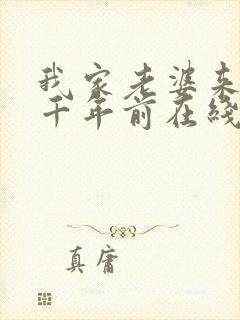 我家老婆来
千年前在线
真庸